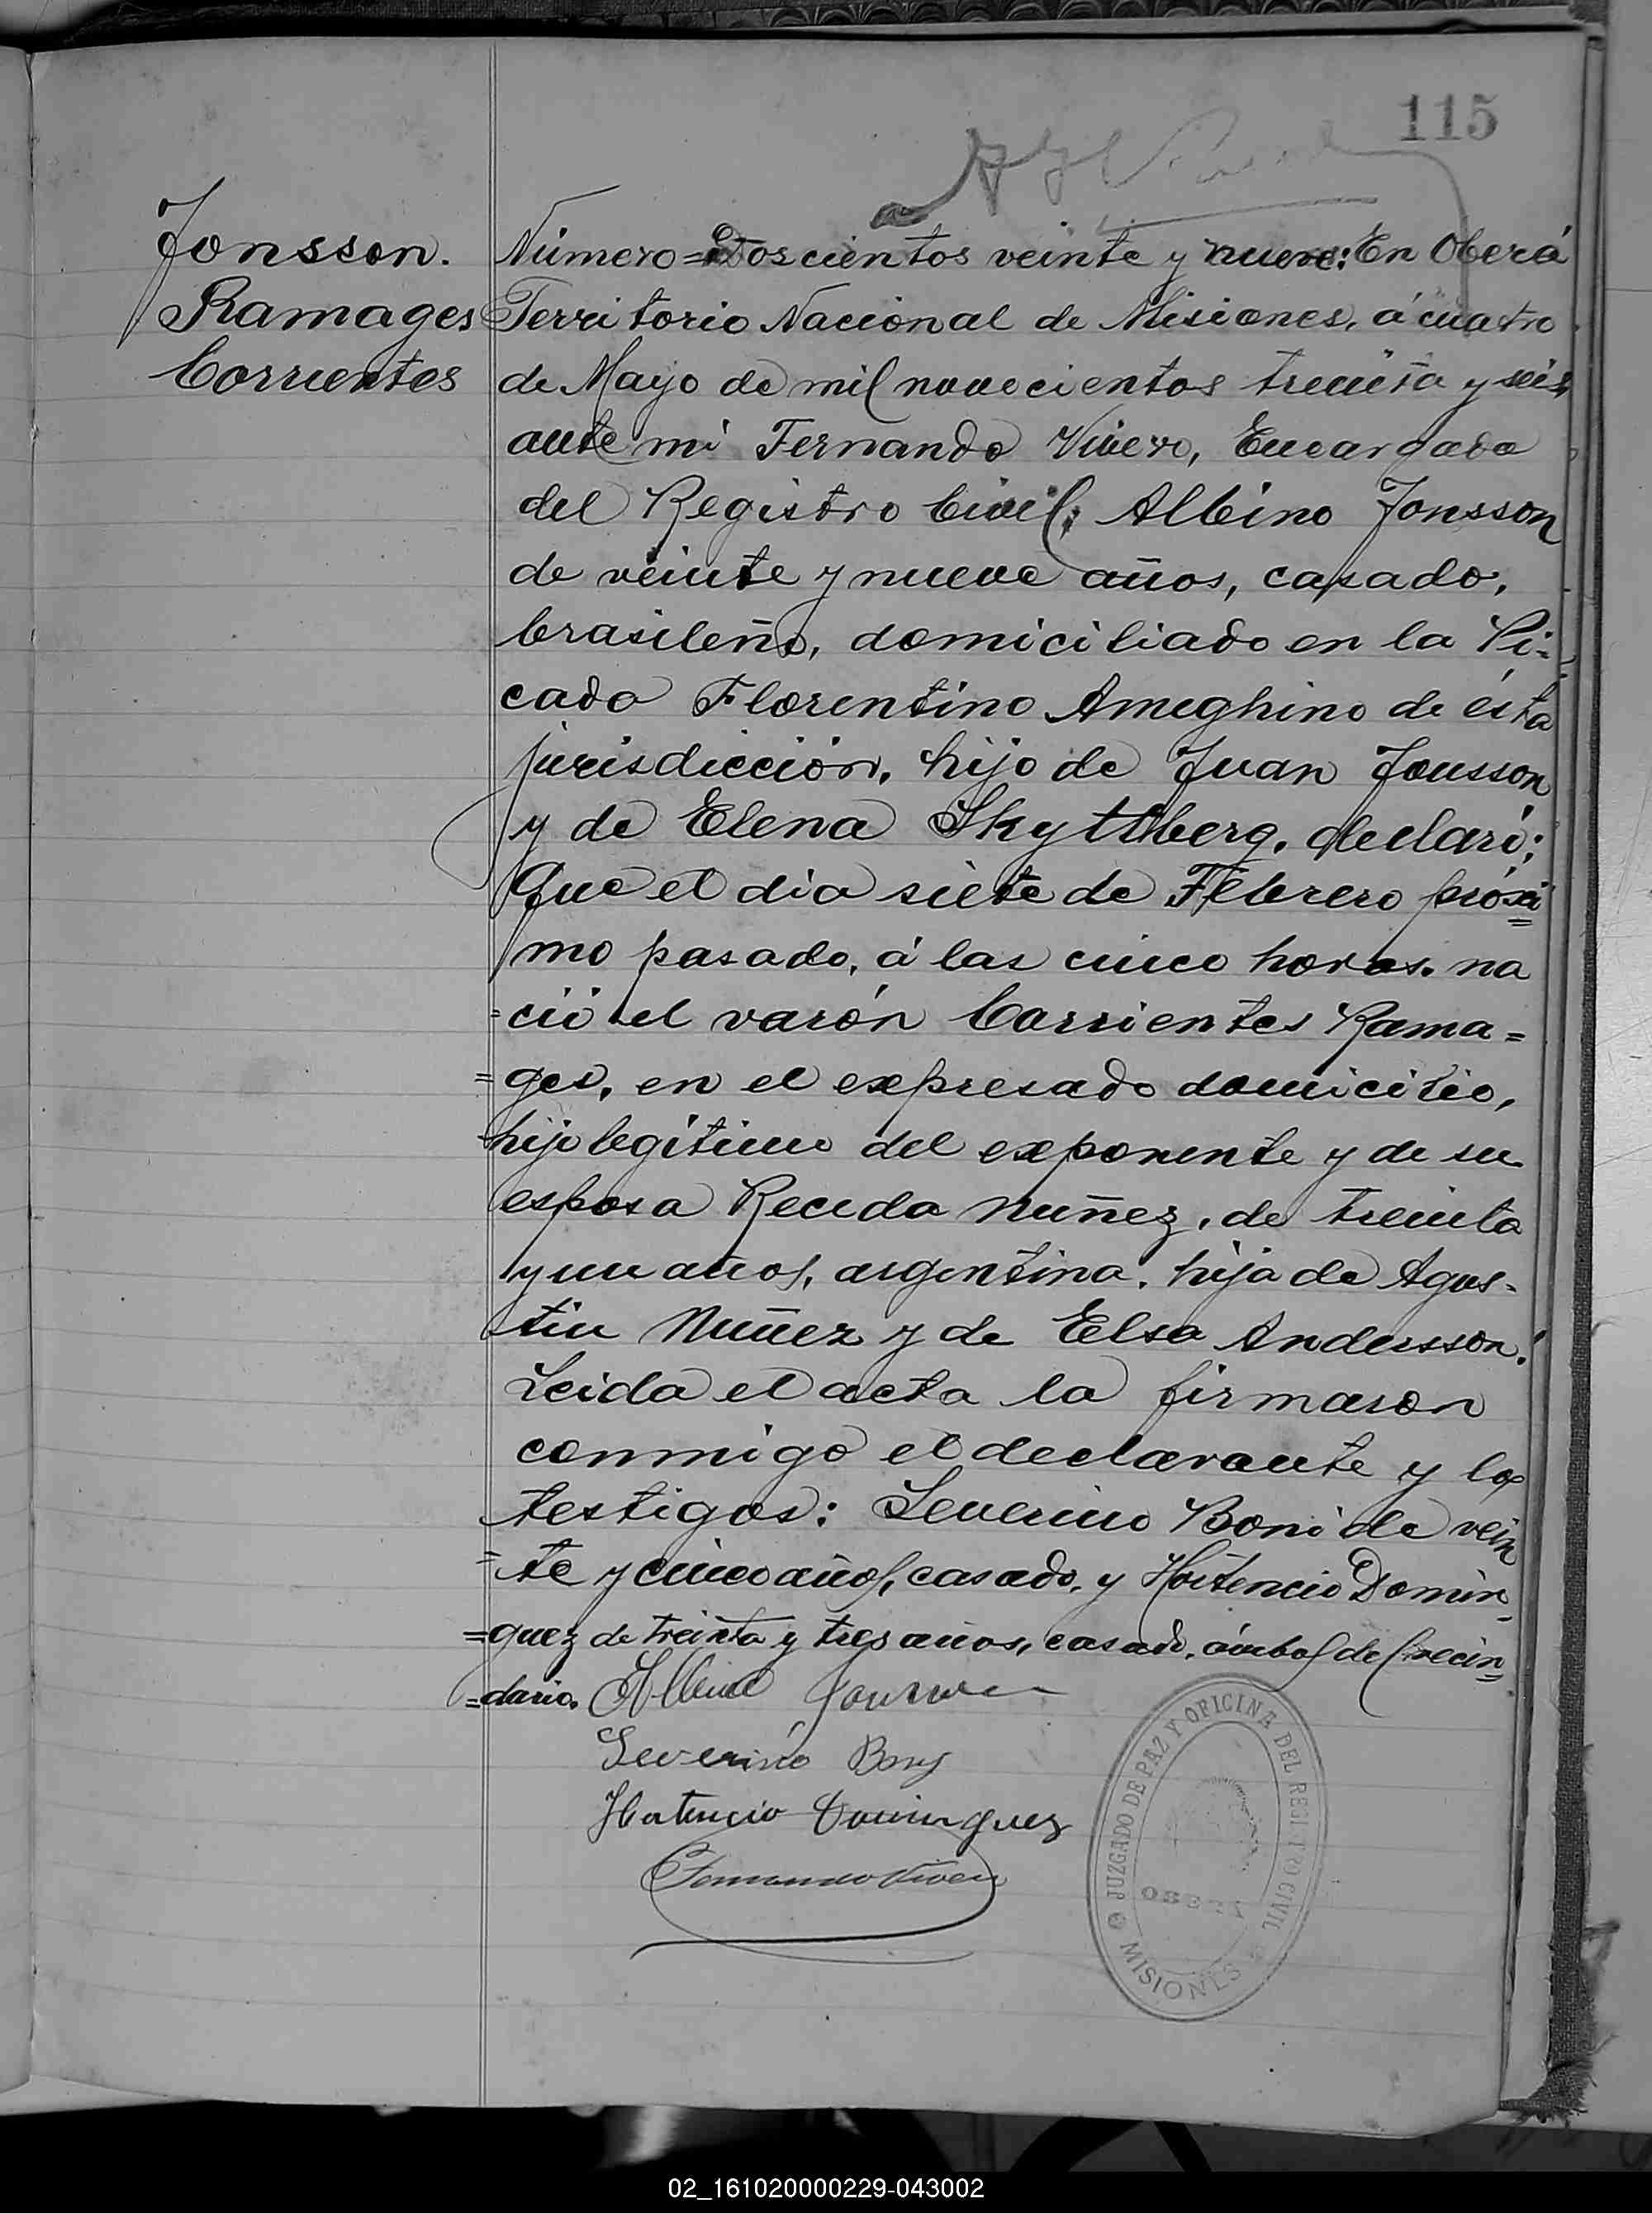 115
Jonsson.
Ramages
Corrientes
Número = Doscientos veinte y nueve: En Oberá
Territorio Nacional de Misiones, á cuatro
de Mayo de mil novecientos treinta y seis,
ante mi Fernando Vivero, Encargado
del Registro Civil; Albino Jonsson
de veinte y nueve años, casado,
brasileño, domiciliado en la Pi-
cada Florentino Ameghino de ésta
jurisdicción, hijo de Juan Jonsson
y de Elena Skyttberg, declaró:
Que el dia siete de Febrero próxi=
mo pasado, á las cinco horas. na
=ció el varón Corrientes Rama=
=ges, en el expresado domicilio,
hijo legitimo del exponente y de su
esposa Receda Nuñez, de treinta
y un años, argentina, hija de Agus-
tin Nuñez y de Elsa Andersson.
Leida el acta la firmaron
conmigo el declarante y los
testigos: Severino Boni de vein
=te y cinco años, casado, y Hortencio Domin
=guez de treinta y tres años, casado, ámbos de l vecin=
=dario. Albino Jonsson
Severino Bony
Hortencio Dominguez
Fernando Vivero
JUZGADO DE PAZ Y OFICINA DEL REGISTRO CIVIL
MISIONES
02_161020000229-043002